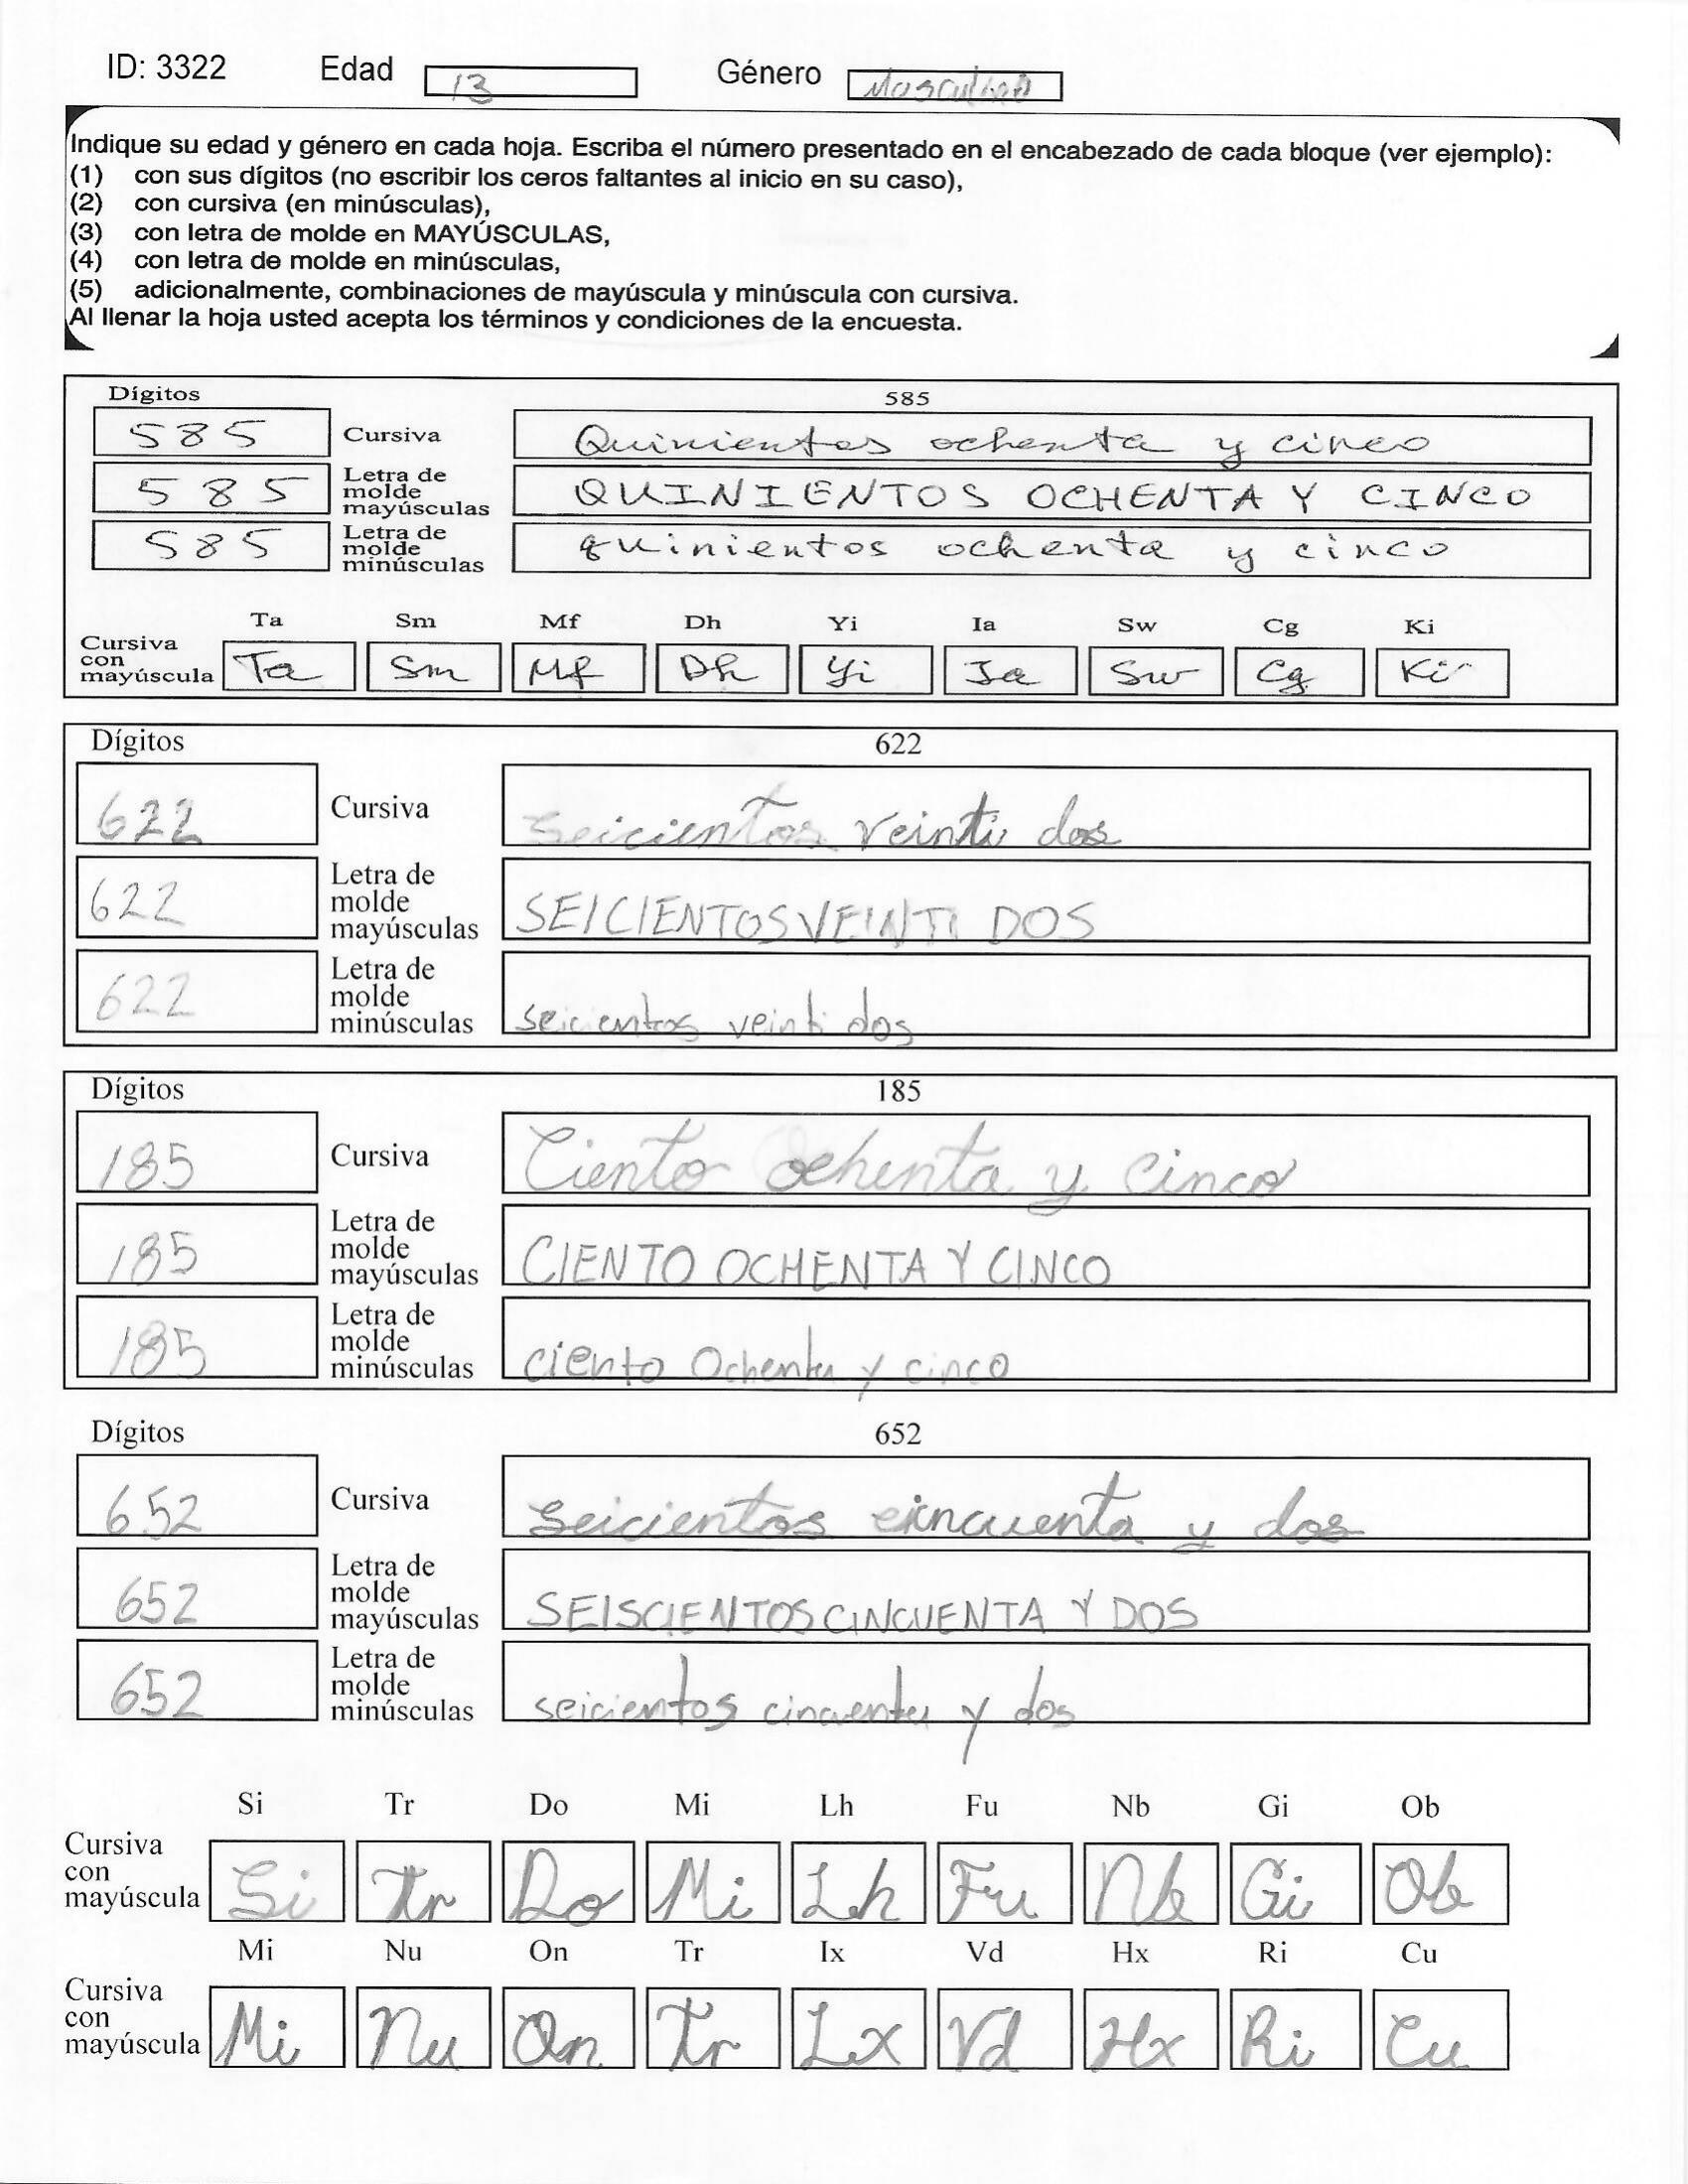 ID: 3322 Edad 13 Género Masculino
Indique su edad y género en cada hoja. Escriba el número presentado en el encabezado de cada bloque (ver ejemplo):
(1) con sus dígitos (no escribir los ceros faltantes al inicio en su caso),
(2) con cursiva (en minúsculas),
(3) con letra de molde en MAYÚSCULAS,
(4) con letra de molde en minúsculas,
(5) adicionalmente, combinaciones de mayúscula y minúscula con cursiva.
Al llenar la hoja usted acepta los términos y condiciones de la encuesta.
Dígitos 585
585 Cursiva Quinientos ochenta y cinco
585 Letra de molde mayúsculas QUINIENTOS OCHENTA Y CINCO
585 Letra de molde minúsculas quinientos ochenta y cinco
Ta Sm Mf Dh Yi Ia Sw Cg Ki
Cursiva con mayúscula Ta Sm Mf Dh Yi Ia Sw Cg Ki
Dígitos 622
622 Cursiva seicientos veinti dos
622 Letra de molde mayúsculas SEICIENTOS VEINTI DOS
622 Letra de molde minúsculas seicientos veinti dos
Dígitos 185
185 Cursiva Ciento ochenta y cinco
185 Letra de molde mayúsculas CIENTO OCHENTA Y CINCO
185 Letra de molde minúsculas ciento Ochenta y cinco
Dígitos 652
652 Cursiva seicientos cincuenta y dos
652 Letra de molde mayúsculas SEISCIENTOS CINCUENTA Y DOS
652 Letra de molde minúsculas seicientos cincuenta y dos
Si Tr Do Mi Lh Fu Nb Gi Ob
Cursiva con mayúscula Si Tr Do Mi Lh Fu Nb Gi Ob
Mi Nu On Tr Ix Vd Hx Ri Cu
Cursiva con mayúscula Mi Nu On Tr Ix Vd Hx Ri Cu